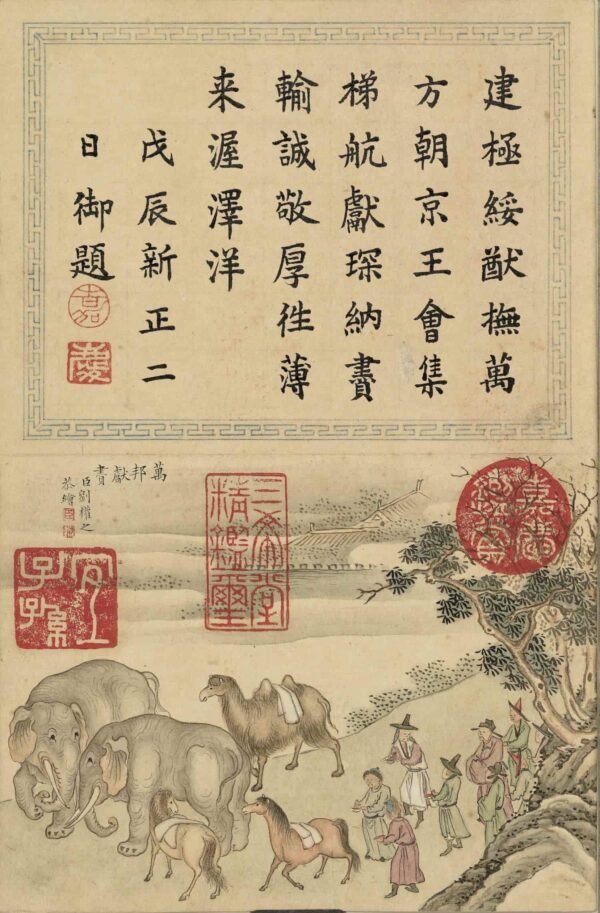 建極綏猷撫萬
方朝京王會集
梯航獻琛納賮
輸誠敬厚徃薄
来渥澤洋
戊辰新正二
日御題
嘉
慶
嘉慶鑑賞
三希堂
精鑑璽
萬邦獻賮
臣劉權之
恭繪
宜
子孫